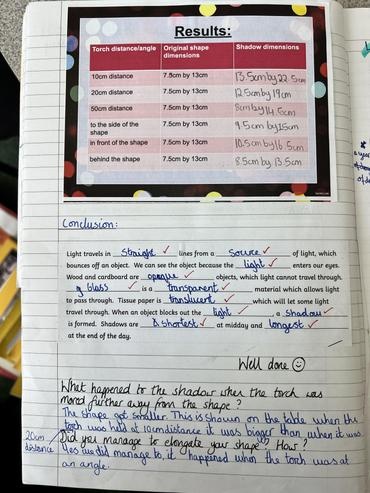 Results:
Torch distance/angle Original shape dimensions Shadow dimensions
10cm distance 7.5cm by 13cm 13.5cm by 22.5cm
20cm distance 7.5cm by 13cm 12.5cm by 19cm
50cm distance 7.5cm by 13cm 8cm by 14.5cm
to the side of the shape 7.5cm by 13cm 9.5cm by 15cm
in front of the shape 7.5cm by 13cm 10.5cm by 16.5cm
behind the shape 7.5cm by 13cm 8.5cm by 13.5cm
Conclusion:
Light travels in straight lines from a source of light, which
bounces off an object. We can see the object because the light enters our eyes.
Wood and cardboard are opaque objects, which light cannot travel through.
glass is a transparent material which allows light
to pass through. Tissue paper is translucent which will let some light
travel through. When an object blocks out the light, a shadow
is formed. Shadows are shortest at midday and longest
at the end of the day.
Well done
What happened to the shadow when the torch was
moved further away from the shape?
The shape got smaller. This is shown on the table when the
torch was held at 10cm distance it was bigger than when it was
20cm distance
Did you manage to elongate your shape? How?
Yes we did manage to, it happened when the torch was at
an angle.